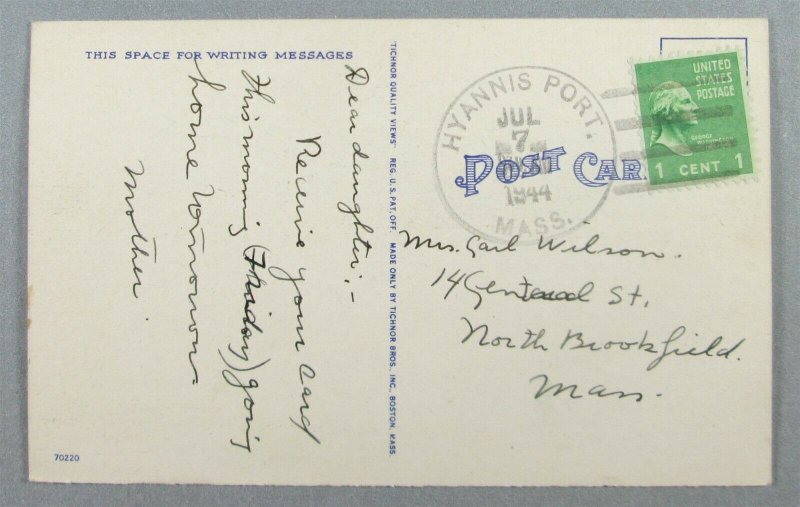 THIS SPACE FOR WRITING MESSAGES
Dear daughter:-
Receive your card
This morning (Friday) going
home tomorrow-
Mother
70220
"TICHNOR QUALITY VIEWS" REG. U.S. PAT. OFF. MADE ONLY BY TICHNOR BROS. INC., BOSTON, MASS.
HYANNIS PORT.
JUL
7
1944
MASS.
POST CAR
UNITED
STATES
POSTAGE
GEORGE
WASHINGTON
1 CENT 1
Mrs. Carl Wilson.
14 Central St,
North Brookfield.
Mass.